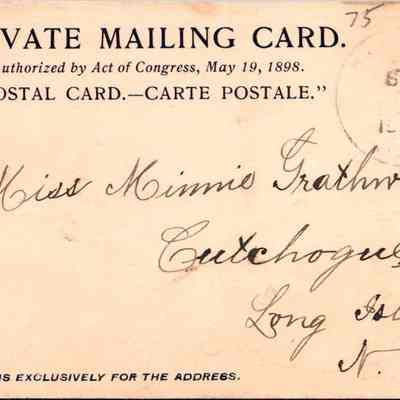 75
VATE MAILING CARD.
uthorized by Act of Congress, May 19, 1898.
OSTAL CARD.—CARTE POSTALE."
Miss Minnie Grathw
Cutchogue
Long Isl
N.
IS EXCLUSIVELY FOR THE ADDRESS.